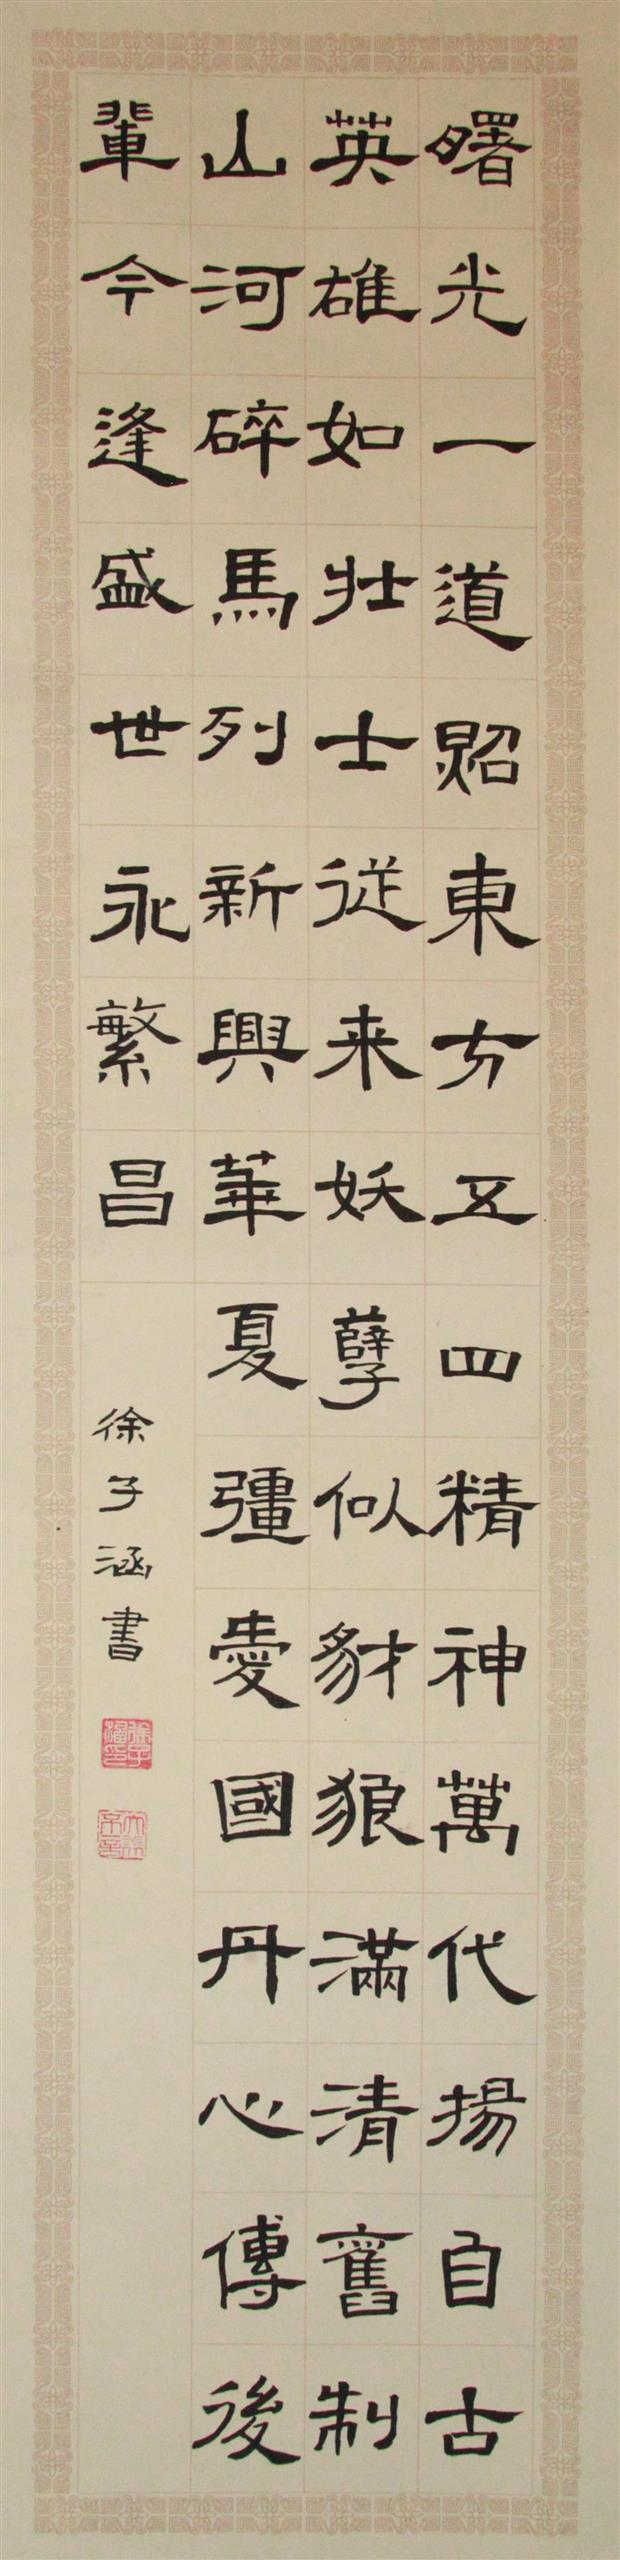 曙光一道照東方五四精神萬代揚自古
英雄如壯士從来妖孽似豺狼滿清舊制
山河碎馬列新興華夏彊愛國丹心傳後
輩今逢盛世永繁昌
徐子涵書